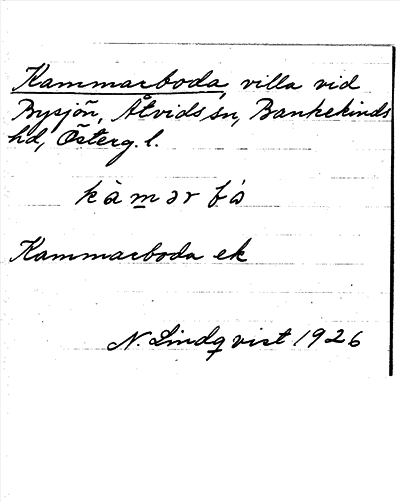 Kammarboda, villa vid
Bysjön, Åtvids sn, Bankekinds
hd, Österg. l.
kàmər bá
Kammarboda ek
N. Lindqvist 1926